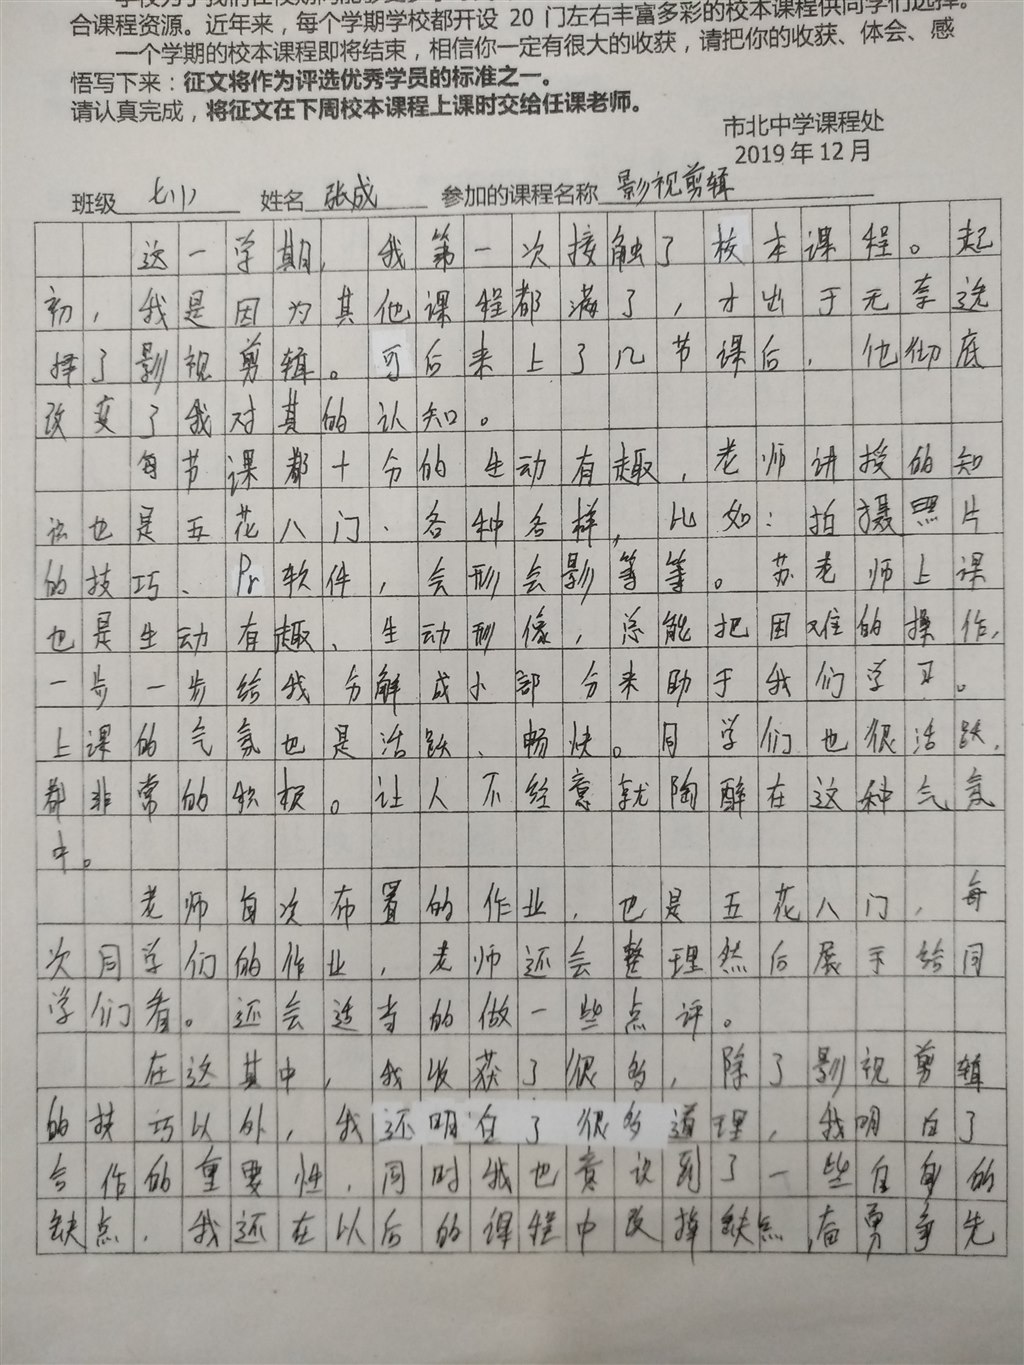 合课程资源。近年来，每个学期学校都开设 20 门左右丰富多彩的校本课程供同学们选择。
一个学期的校本课程即将结束，相信你一定有很大的收获，请把你的收获、体会、感
悟写下来：征文将作为评选优秀学员的标准之一。
请认真完成，将征文在下周校本课程上课时交给任课老师。
市北中学课程处
2019 年 12 月
班级 七(1) 姓名 张成 参加的课程名称 影视剪辑
这一学期，我第一次接触了校本课程。起
初，我是因为其他课程都满了，才出于无奈选
择了影视剪辑。可后来上了几节课后，他彻底
改变了我对其的认知。
每节课都十分的生动有趣，老师讲授的知
识也是五花八门、各种各样，比如：拍摄照片
的技巧、Pr软件，会形会影等等。苏老师上课
也是生动有趣、生动形像，总能把困难的操作，
一步一步给我分解成小部分来助于我们学习。
上课的气氛也是活跃、畅快。同学们也很活跃，
都非常的积极。让人不经意就陶醉在这种气氛
中。
老师每次布置的作业，也是五花八门，每
次同学们的作业，老师还会整理然后展示给同
学们看。还会适当的做一些点评。
在这其中，我收获了很多，除了影视剪辑
的技巧以外，我还明白了很多道理，我明白了
合作的重要性，同时我也意识到了一些自身的
缺点，我还在以后的课程中改掉缺点，奋勇争先